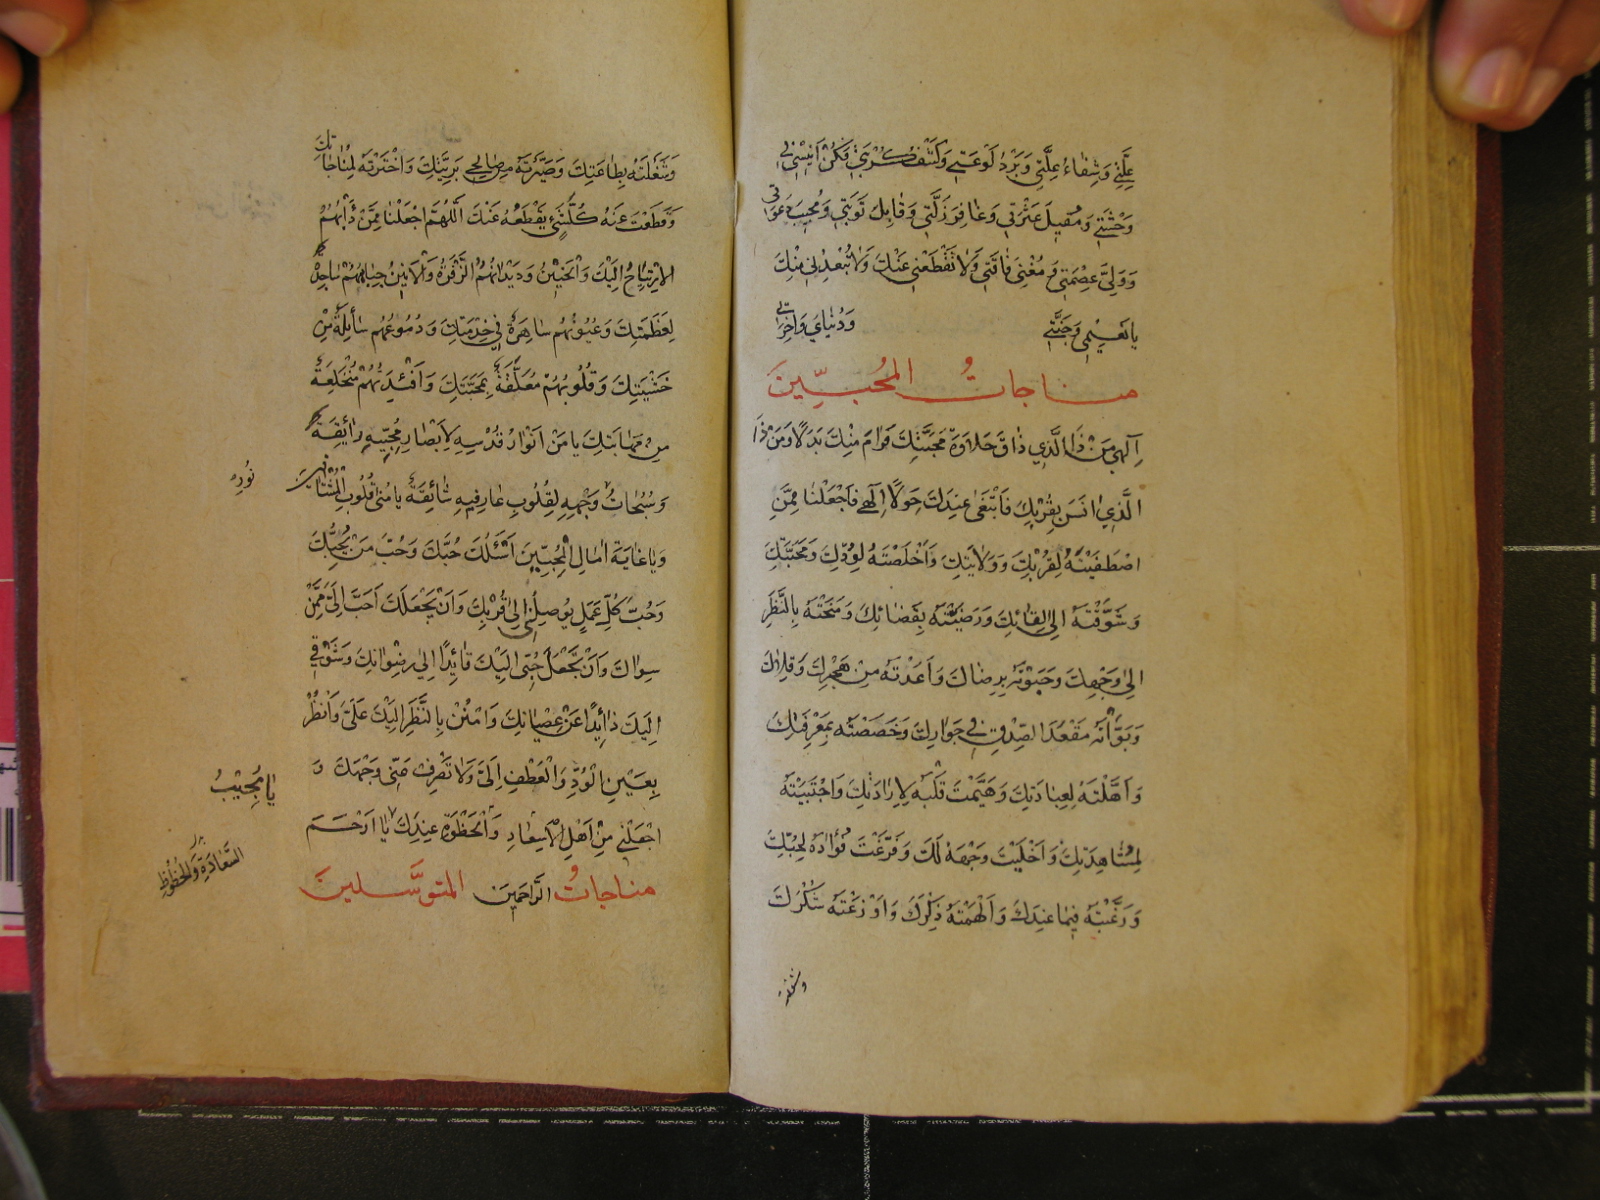 عِلَّتِي وَشِفَاءَ عِلَّتِي وَبَرْدَ لَوْعَتِي وَكَشْفَ كُرْبَتِي فَكُنْ اَنِيسِي فِي
وَحْشَتِي وَمُقِيلَ عَثْرَتِي وَغَافِرَ زَلَّتِي وَقَابِلَ تَوْبَتِي وَمُجِيبَ دَعْوَتِي
وَوَلِيَّ عِصْمَتِي وَمُغْنِيَ فَاقَتِي وَلَا تَقْطَعْنِي عَنْكَ وَلَا تُبْعِدْنِي مِنْكَ
يَا نَعِيمِي وَجَنَّتِي وَدُنْيَايَ وَآخِرَتِي
مناجاتُ المُحُبِّينَ
اِلٰهِي مَنْ ذَا الَّذِي ذَاقَ حَلَاوَةَ مَحَبَّتِكَ فَرَامَ مِنْكَ بَدَلًا وَمَنْ ذَا
الَّذِي اَنَسَ بِقُرْبِكَ فَابْتَغٰى عِنْدَكَ حِوَلًا اِلٰهِي فَاجْعَلْنَا مِمَّنِ
اصْطَفَيْتَهُ لِقُرْبِكَ وَوِلَايَتِكَ وَاَخْلَصْتَهُ لِوُدِّكَ وَمَحَبَّتِكَ
وَشَوَّقْتَهُ اِلٰى لِقَائِكَ وَرَضَّيْتَهُ بِقَضَائِكَ وَمَنَحْتَهُ بِالنَّظَرِ
اِلٰى وَجْهِكَ وَحَبَوْتَهُ بِرِضَاكَ وَاَعَذْتَهُ مِنْ هَجْرِكَ وَقِلَاكَ
وَبَوَّأْتَهُ مَقْعَدَ الصِّدْقِ فِي جَوَارِكَ وَخَصَصْتَهُ بِمَعْرِفَتِكَ
وَاَهَّلْتَهُ لِعِبَادَتِكَ وَهَيَّمْتَ قَلْبَهُ لِاِرَادَتِكَ وَاجْتَبَيْتَهُ
لِمُشَاهَدَتِكَ وَاَخْلَيْتَ وَجْهَهُ لَكَ وَفَرَّغْتَ فُؤَادَهُ لِحُبِّكَ
وَرَغَّبْتَهُ فِيمَا عِنْدَكَ وَاَلْهَمْتَهُ ذِكْرَكَ وَاَوْزَعْتَهُ شُكْرَكَ
وَشَغَلْتَهُ بِطَاعَتِكَ وَصَيَّرْتَهُ مِنْ صَالِحِي بَرِيَّتِكَ وَاخْتَرْتَهُ لِمُنَاجَاتِكَ
وَقَطَعْتَ عَنْهُ كُلَّ شَيْءٍ يَقْطَعُهُ عَنْكَ اَللّٰهُمَّ اجْعَلْنَا مِمَّنْ دَأْبُهُمُ
الِارْتِيَاحُ اِلَيْكَ وَالْحَنِينُ وَدَيْدَانُهُمُ الزَّفْرَةُ وَالْاَنِينُ جِبَاهُهُمْ سَاجِدَةٌ
لِعَظَمَتِكَ وَعُيُونُهُمْ سَاهِرَةٌ فِي خِدْمَتِكَ وَدُمُوعُهُمْ سَائِلَةٌ مِنْ
خَشْيَتِكَ وَقُلُوبُهُمْ مُعَلَّقَةٌ بِمَحَبَّتِكَ وَاَفْئِدَتُهُمْ مُنْخَلِعَةٌ
مِنْ مَهَابَتِكَ يَا مَنْ اَنْوَارُ قُدْسِهِ لِاَبْصَارِ مُحِبِّيهِ رَائِقَةٌ
وَسُبُحَاتُ وَجْهِهِ لِقُلُوبِ عَارِفِيهِ شَائِقَةٌ يَا مُنٰى قُلُوبِ الْمُشْتَاقِينَ
نُورِهِ
وَيَا غَايَةَ اٰمَالِ الْمُحِبِّينَ اَسْئَلُكَ حُبَّكَ وَحُبَّ مَنْ يُحِبُّكَ
وَحُبَّ كُلِّ عَمَلٍ يُوصِلُنِي اِلٰى قُرْبِكَ وَاَنْ تَجْعَلَكَ اَحَبَّ اِلَيَّ مِمَّنْ
سِوَاكَ وَاَنْ تَجْعَلَ حُبِّي اِلَيْكَ قَائِدًا اِلٰى رِضْوَانِكَ وَشَوْقِي
اِلَيْكَ ذَائِدًا عَنْ عِصْيَانِكَ وَامْنُنْ بِالنَّظَرِ اِلَيْكَ عَلَيَّ وَانْظُرْ
بِعَيْنِ الْوُدِّ وَالْعَطْفِ اِلَيَّ وَلَا تَصْرِفْ عَنِّي وَجْهَكَ وَ
يَا مُجِيبُ
اجْعَلْنِي مِنْ اَهْلِ الْاِسْعَادِ وَالْحُظْوَةِ عِنْدَكَ يَا اَرْحَمَ
السَّعَادَةِ وَالْحُظُوظِ
مناجاتُ الرَّاحِمِينَ المتوسَّلينَ